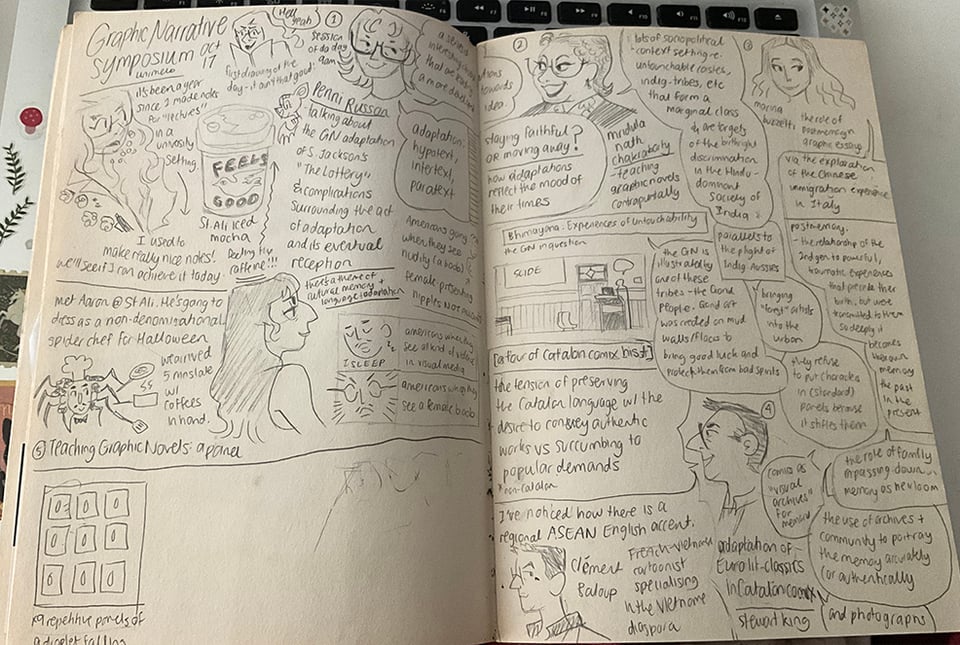 Graphic Narrative
symposium oct
17
unimelb
Hell
yeah
first drawing of the
day - it ain't that good.
①
session
of da day
9am
a series
interesting
that are
it's been a year
since I made notes
for "techies"
in a
university
setting
FEELS
GOOD
St. Ali Iced
mocha
I used to
make really nice notes!
we'll see if I can achieve it today
feeling the
caffeine!!!
@ Penni Russon
- talking about
the GN adaptation
of S. Jackson's
"The Lottery"
& complications
surrounding the act
of adaptation
and its eventual
reception
adaptation,
hypotext,
intertext,
paratext
there's a theme of
cultural memory +
language to adaptation
Americans going
when they see
nudity (a boob)
female presenting
nipples NOT
met Aaron @ St Ali. He's going to
dress as a non-denominational
spider chef for Halloween
we arrived
5 mns late
w/
coffees
in hand.
I SLEEP
americans when they
see all kind of violence
in visual media
americans when they
see a female boob
⑤ Teaching Graphic Novels: a panel
repetitive panels of
a droplet falling
②
towards
idea.
staying faithful
OR moving away?
how adaptations
reflect the mood of
their times
mridula
nath
chakraborty
- teaching
graphic novels
contrapuntally
lots of sociopolitical
context setting re.
untouchable castes,
indig. tribes, etc
that form a
marginal class
& are targets
of the birthright
discrimination
in the Hindu-
dominant
society of
India &
parallels to
the plight of
Indig Aussies
Bhimayana: Experiences of Untouchability
the GN in question
SLIDE
the GN is
illustrated by
one of these
tribes - the Gond
People. Gond art
was created on mud
walls/floors to
bring good luck and
protect them from bad spirits
bringing
"forest" artists
into the
urban
they refuse
to put characters
in (standard)
panels because
it stifles them
③
marina
the role of
postmemory in
graphic essays
via the exploration
of the Chinese
immigration experience
in Italy
postmemory:
- the relationship of the
2nd gen to powerful,
traumatic experiences
that precede their
birth, but were
transmitted to them
so deeply it
becomes
their own
memory
the past
in the
present
[a tour of Catalan comix hist]
the tension of preserving
the Catalan language w/ the
desire to convey authentic
works vs succumbing to
popular demands
* non-catalan
④
I've noticed how there is a
regional ASEAN English accent.
Clément
Baloup
French-Vietnamese
cartoonist
specialising
in the Vietname
diaspora
adaptation of
Euro lit-classics
in Catalan comix
stewart king
comics as
"visual
archives"
for
memory
the role of family
in passing down
memory as heirloom
the use of archives +
community to portray
the memory accurately
(or authentically
and photographs